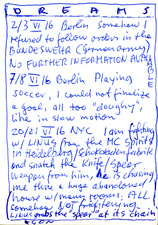 DREAMS
2/3 VI 16 Berlin Somehow I
refused to follow orders in the
BUNDESWEHR (German army)
NO FURTHER INFORMATION AVAILABLE
7/8 VI 16 Berlin Playing
soccer, I could not finalize
a goal, all too "doughy"
like in slow motion
20/21 VI 16 NYC I am fighting
w/ LINUS from the MC Spirits
in Heidelberg/Schokoladenfabrik
and snatch the knife/spear
weapon from him, he is chasing
me thru a huge abandoned
house w/ many rooms. ALL
somehow NOT frightening,
LINUS grabs the "spear" at its chain